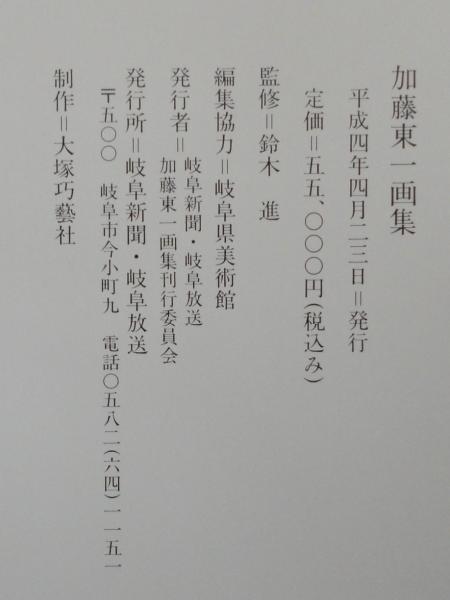 加藤東一画集
平成四年四月二三日＝発行
定価＝五五、〇〇〇円（税込み）
監修＝鈴木　進
編集協力＝岐阜県美術館
発行者＝岐阜新聞・岐阜放送
加藤東一画集刊行委員会
発行所＝岐阜新聞・岐阜放送
〒五〇〇　岐阜市今小町九　電話〇五八二（六四）一一五一
制作＝大塚巧藝社